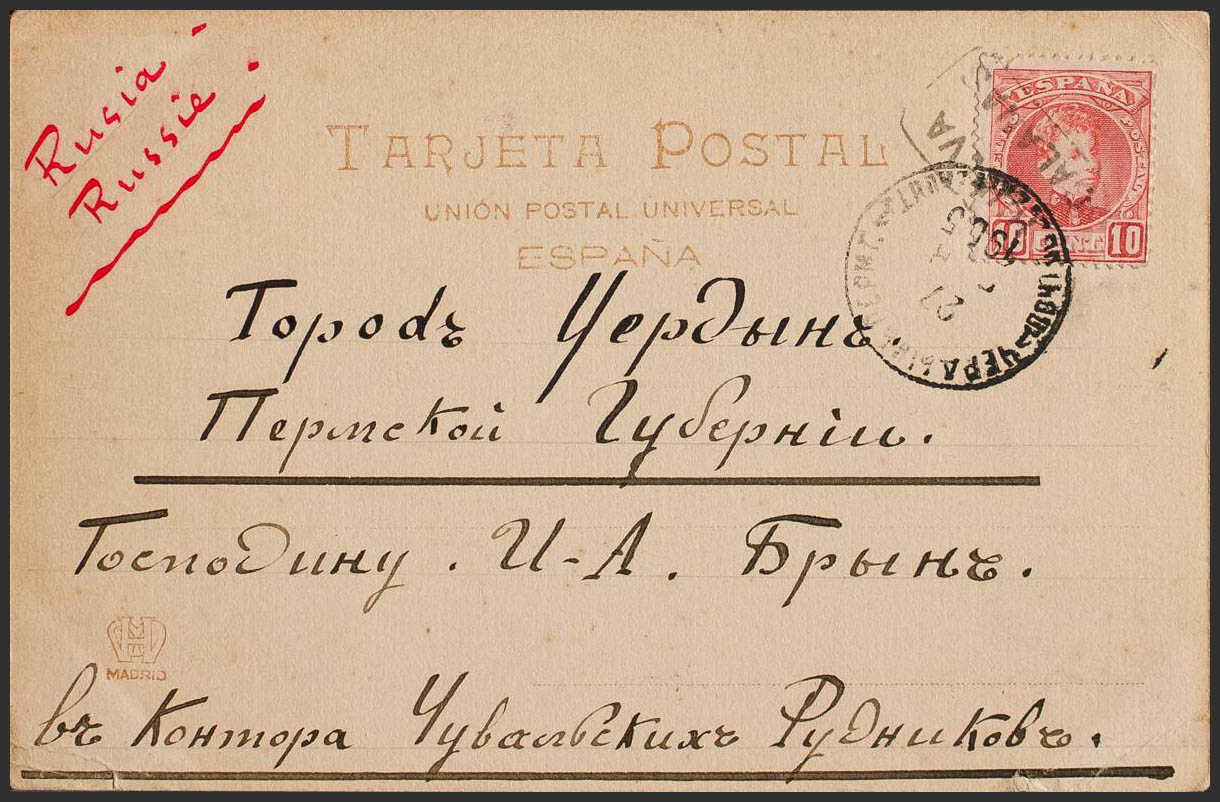 Rusia
Russie
TARJETA POSTAL
UNIÓN POSTAL UNIVERSAL
ESPAÑA
ESPAÑA
10 CENT. 10
Городъ Чердынъ.
Пермской Губерніи.
Господину. И-А. Брынъ.
MADRID
въ Контора Чувальскихъ Рудниковъ.
ЧЕРДЫНЬ ПЕРМ. Г.
21